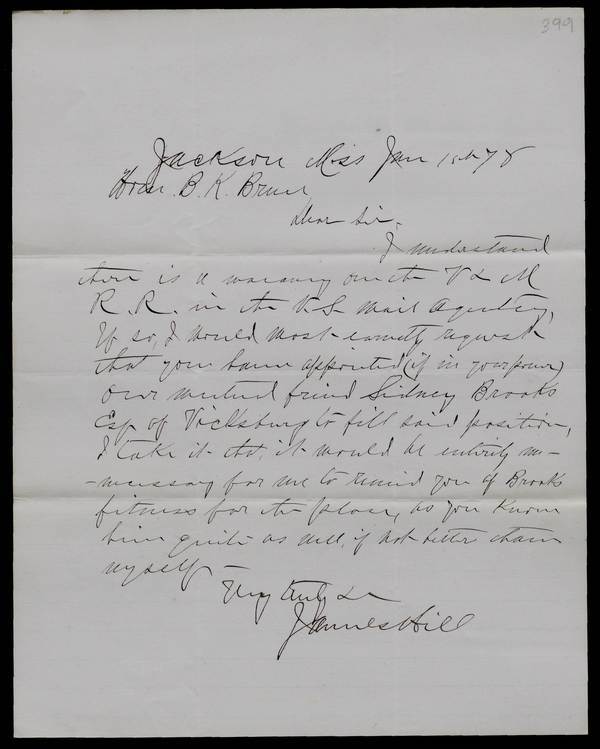 399
Jackson Miss Jan 78
Hon. B. K. Bruce
Dear Sir,
I understand
there is a vacancy on the V & M
R. R. in the U.S. Mail Agentcy,
If so, I would most earnestly request
that you have appointed (if in your power)
our mutual friend Sidney Brooks
Esq. of Vicksburg to fill said position,
I take it that it would be entirely un-
-necessary for me to remind you of Brooks
fitness for the place, as you know
him quite as well, if not better than
myself —
Very truly &c
James Hill